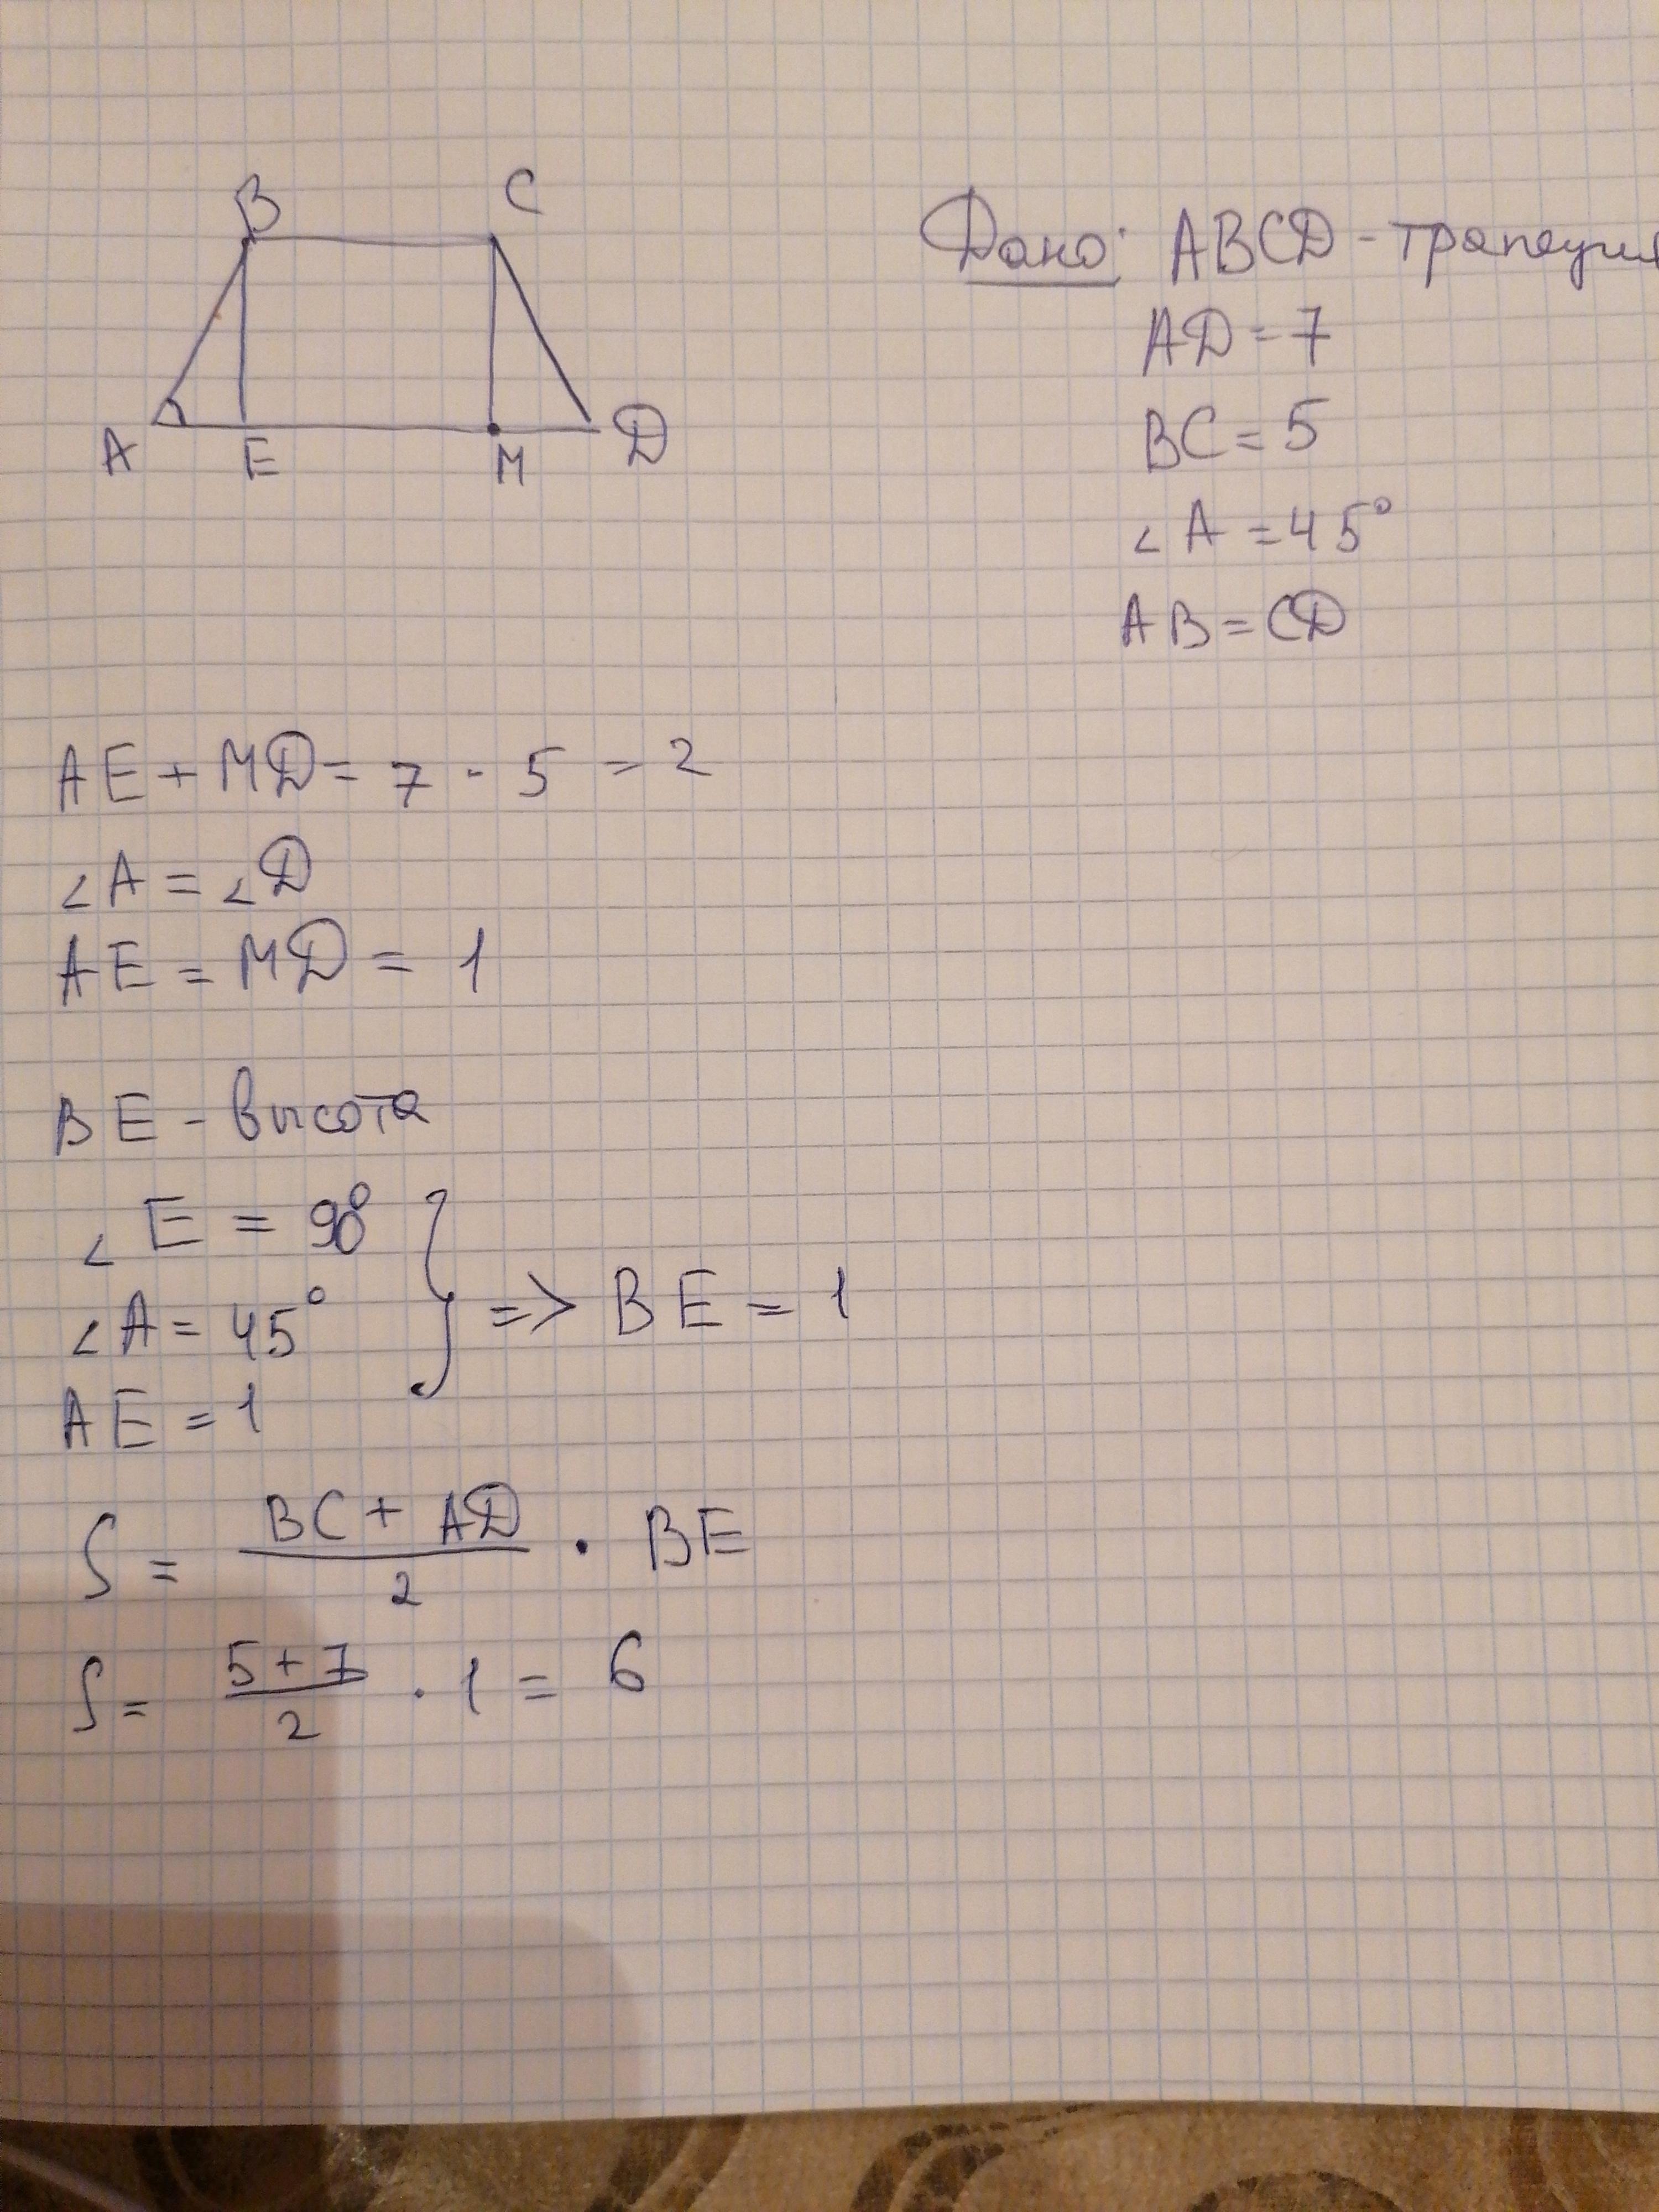 B C
A E M D
Дано: ABCD - трапеция
AD = 7
BC = 5
∠A = 45°
AB = CD
AE + MD = 7 - 5 = 2
∠A = ∠D
AE = MD = 1
BE - высота
∠E = 90°
∠A = 45°
AE = 1
} => BE = 1
S = (BC + AD)/2 · BE
S = (5 + 7)/2 · 1 = 6